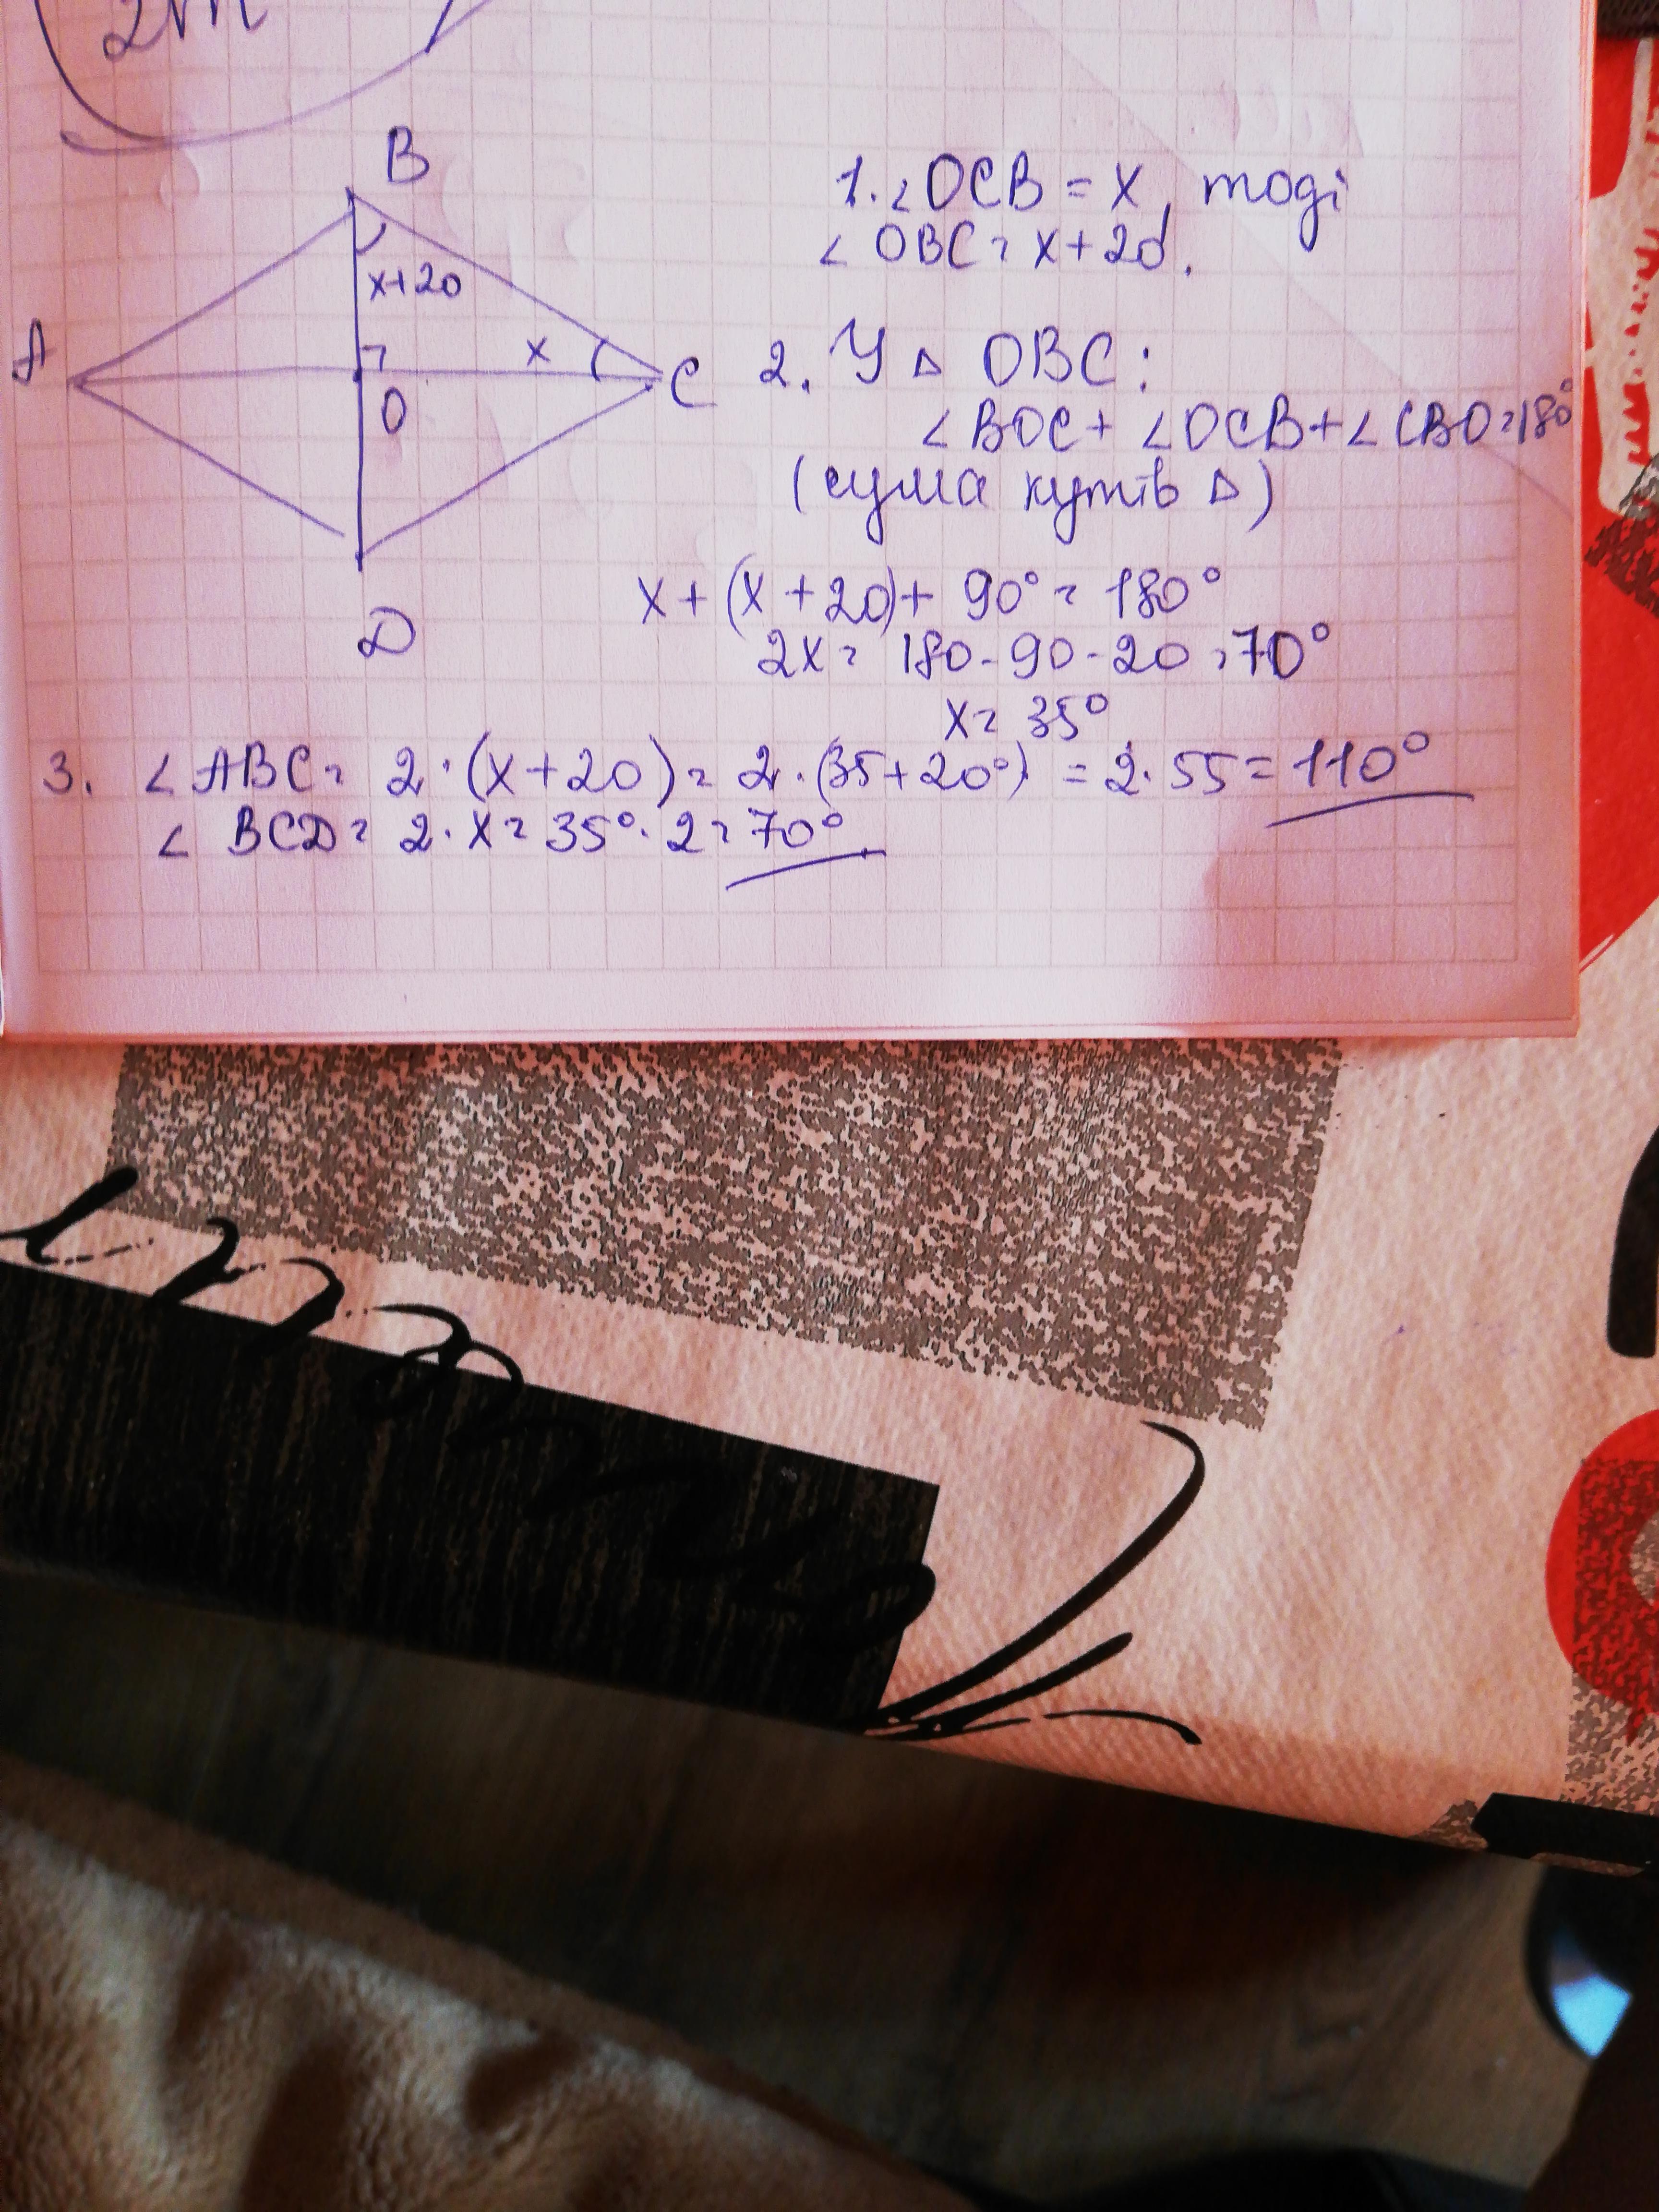 2m
B
x+20
A
x
O
C
D
1. ∠OCB = x, тоді
∠ OBC = x+20.
2. У △ OBC:
∠BOC + ∠OCB + ∠CBO = 180°
(сума кутів △)
x + (x + 20) + 90° = 180°
2x = 180 - 90 - 20 = 70°
x = 35°
3. ∠ABC = 2 · (x+20) = 2 · (35+20°) = 2 · 55 = 110°
∠ BCD = 2 · x = 35° · 2 = 70°.